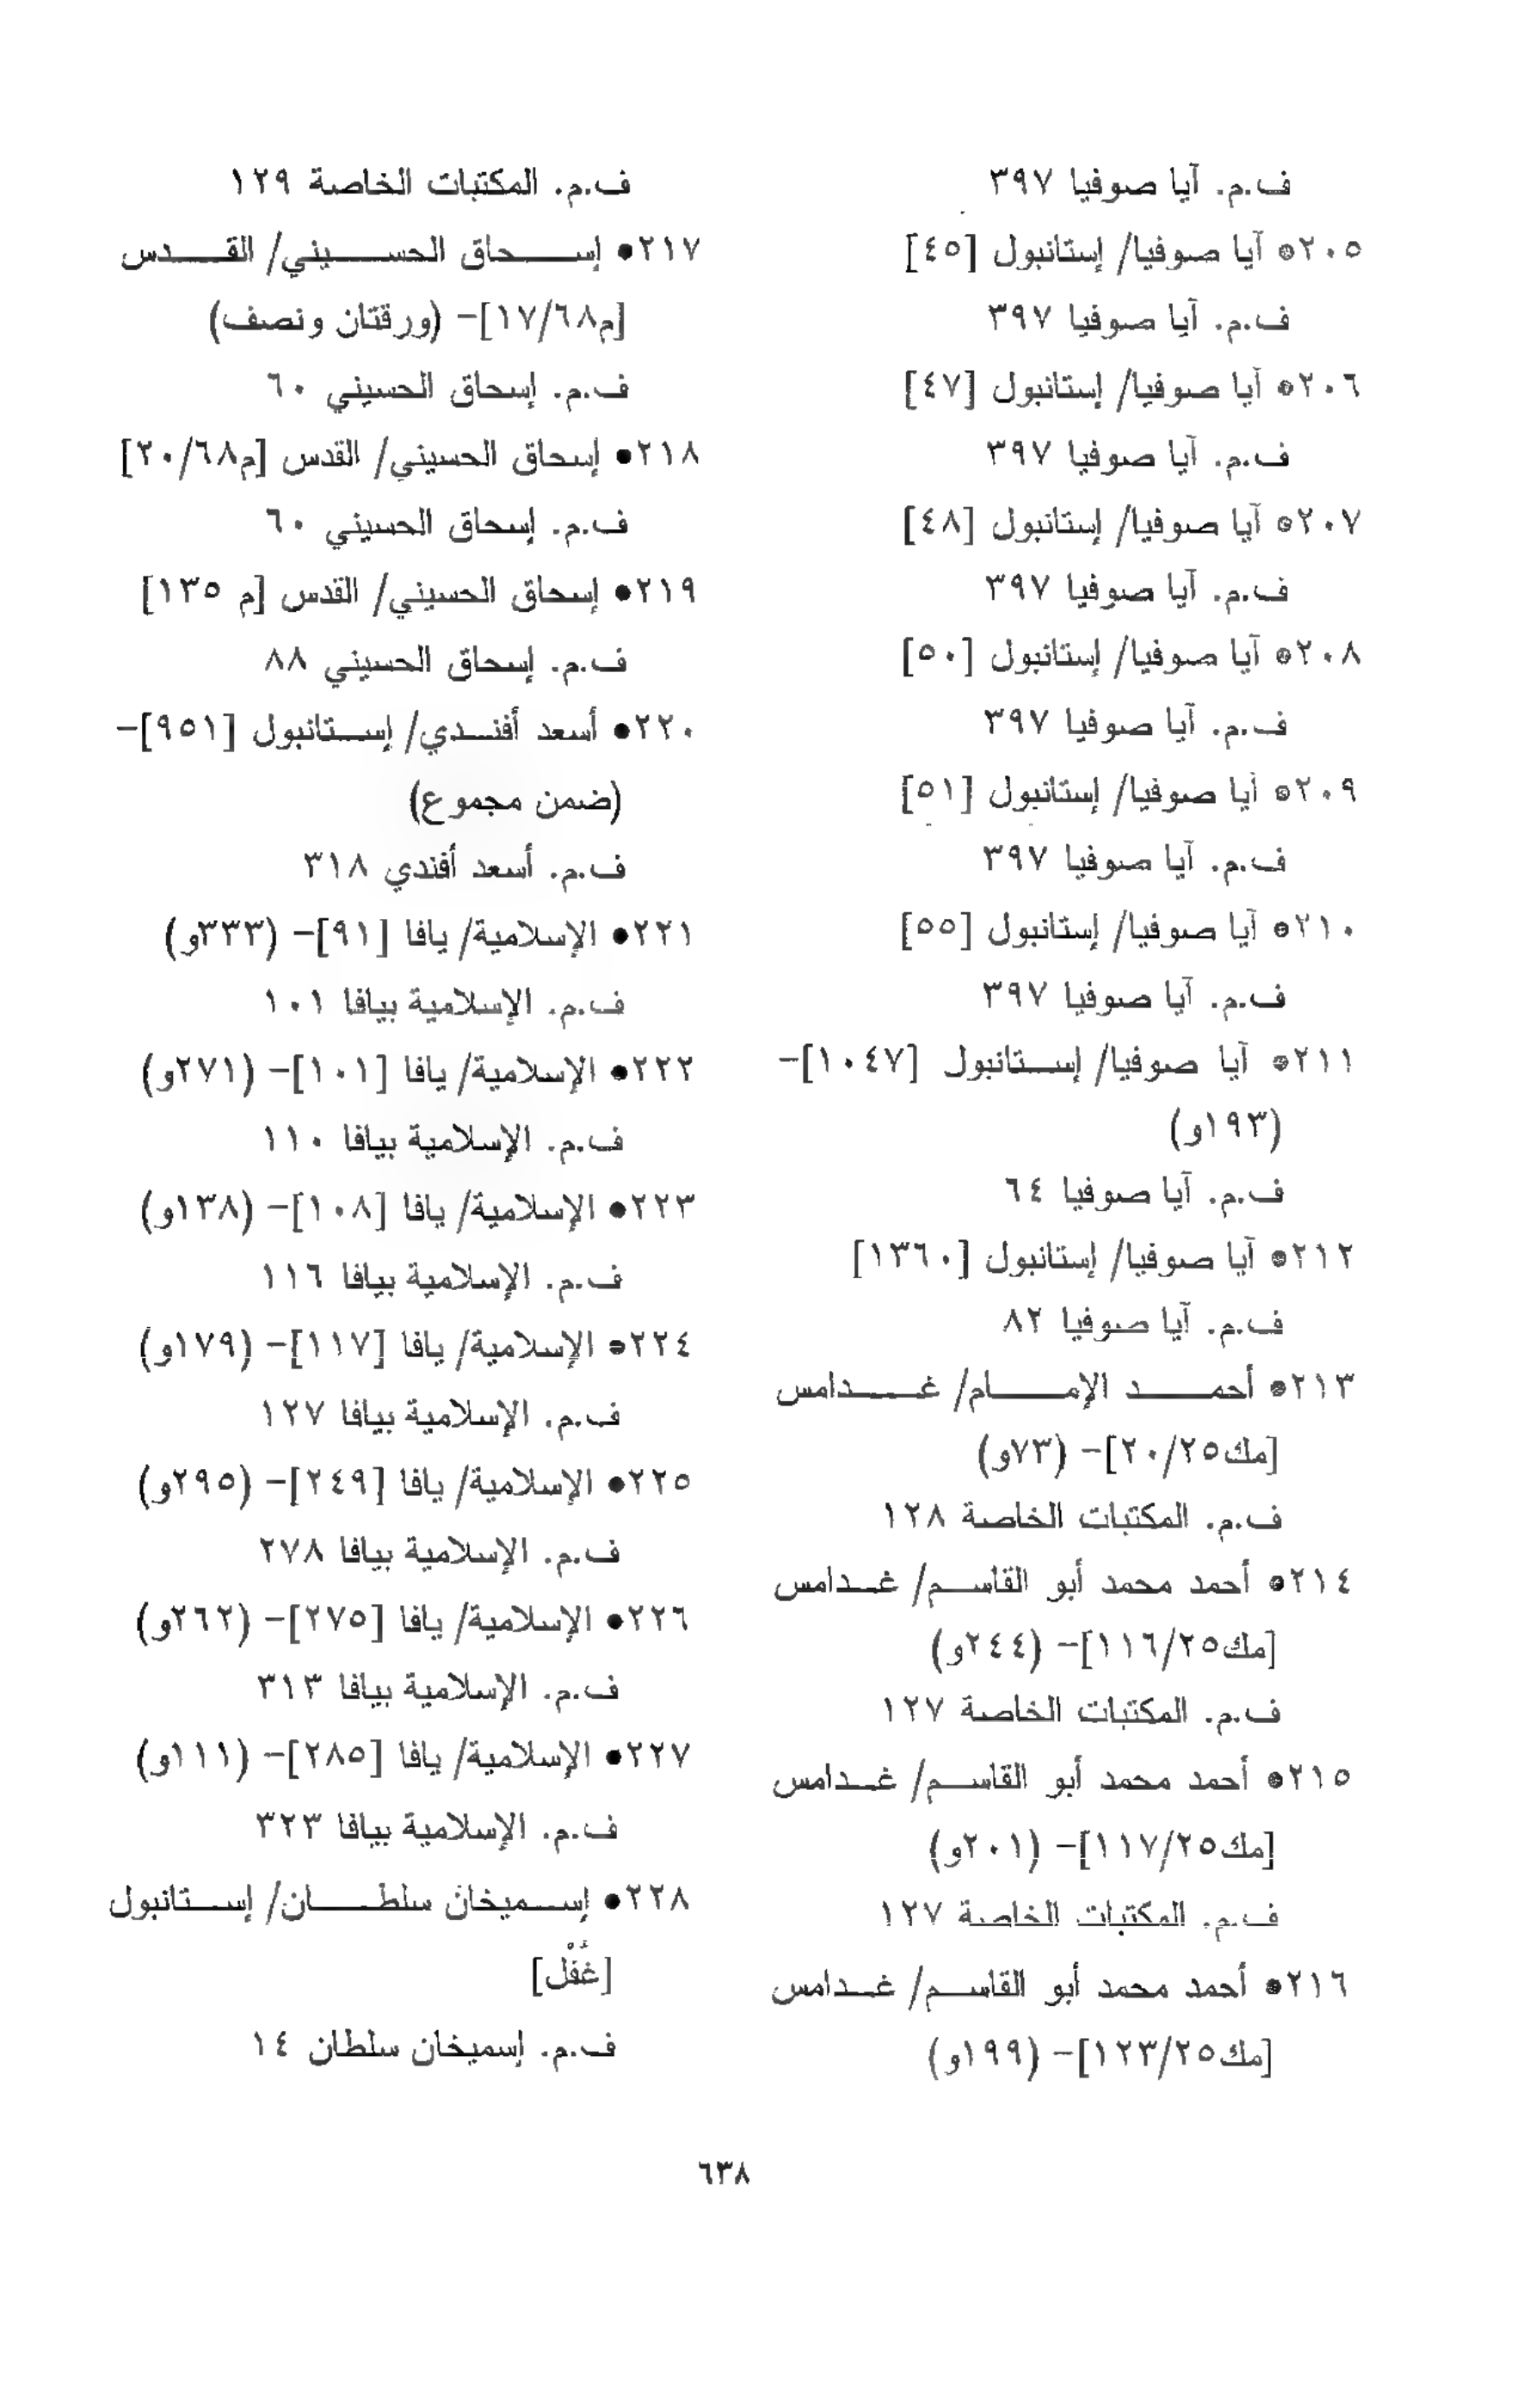 ف.م. آيا صوفيا ٣٩٧
٢٠٥• آيا صوفيا/ إستانبول [٤٥]
ف.م. آيا صوفيا ٣٩٧
٢٠٦• آيا صوفيا/ إستانبول [٤٧]
ف.م. آيا صوفيا ٣٩٧
٢٠٧• آيا صوفيا/ إستانبول [٤٨]
ف.م. آيا صوفيا ٣٩٧
٢٠٨• آيا صوفيا/ إستانبول [٥٠]
ف.م. آيا صوفيا ٣٩٧
٢٠٩• آيا صوفيا/ إستانبول [٥١]
ف.م. آيا صوفيا ٣٩٧
٢١٠• آيا صوفيا/ إستانبول [٥٥]
ف.م. آيا صوفيا ٣٩٧
٢١١• آيا صوفيا/ إستانبول [١٠٤٧]-
(١٩٣و)
ف.م. آيا صوفيا ٦٤
٢١٢• آيا صوفيا/ إستانبول [١٣٦٠]
ف.م. آيا صوفيا ٨٢
٢١٣• أحمد الإمام/ غدامس
[مك٢٠/٢٥]- (٧٣و)
ف.م. المكتبات الخاصة ١٢٨
٢١٤• أحمد محمد أبو القاسم/ غدامس
[مك١١٦/٢٥]- (٢٤٤و)
ف.م. المكتبات الخاصة ١٢٧
٢١٥• أحمد محمد أبو القاسم/ غدامس
[مك١١٧/٢٥]- (٢٠١و)
ف.م. المكتبات الخاصة ١٢٧
٢١٦• أحمد محمد أبو القاسم/ غدامس
[مك١٢٣/٢٥]- (١٩٩و)
ف.م. المكتبات الخاصة ١٢٩
٢١٧• إسحاق الحسيني/ القدس
[م١٧/٦٨]- (ورقتان ونصف)
ف.م. إسحاق الحسيني ٦٠
٢١٨• إسحاق الحسيني/ القدس [م٢٠/٦٨]
ف.م. إسحاق الحسيني ٦٠
٢١٩• إسحاق الحسيني/ القدس [م ١٣٥]
ف.م. إسحاق الحسيني ٨٨
٢٢٠• أسعد أفندي/ إستانبول [٩٥١]-
(ضمن مجموع)
ف.م. أسعد أفندي ٣١٨
٢٢١• الإسلامية/ يافا [٩١]- (٣٣٣و)
ف.م. الإسلامية بيافا ١٠١
٢٢٢• الإسلامية/ يافا [١٠١]- (٢٧١و)
ف.م. الإسلامية بيافا ١١٠
٢٢٣• الإسلامية/ يافا [١٠٨]- (١٣٨و)
ف.م. الإسلامية بيافا ١١٦
٢٢٤• الإسلامية/ يافا [١١٧]- (١٧٩و)
ف.م. الإسلامية بيافا ١٢٧
٢٢٥• الإسلامية/ يافا [٢٤٩]- (٢٩٥و)
ف.م. الإسلامية بيافا ٢٧٨
٢٢٦• الإسلامية/ يافا [٢٧٥]- (٢٦٢و)
ف.م. الإسلامية بيافا ٣١٣
٢٢٧• الإسلامية/ يافا [٢٨٥]- (١١١و)
ف.م. الإسلامية بيافا ٣٢٣
٢٢٨• إسميخان سلطان/ إستانبول
[غُفْل]
ف.م. إسميخان سلطان ١٤
٦٣٨